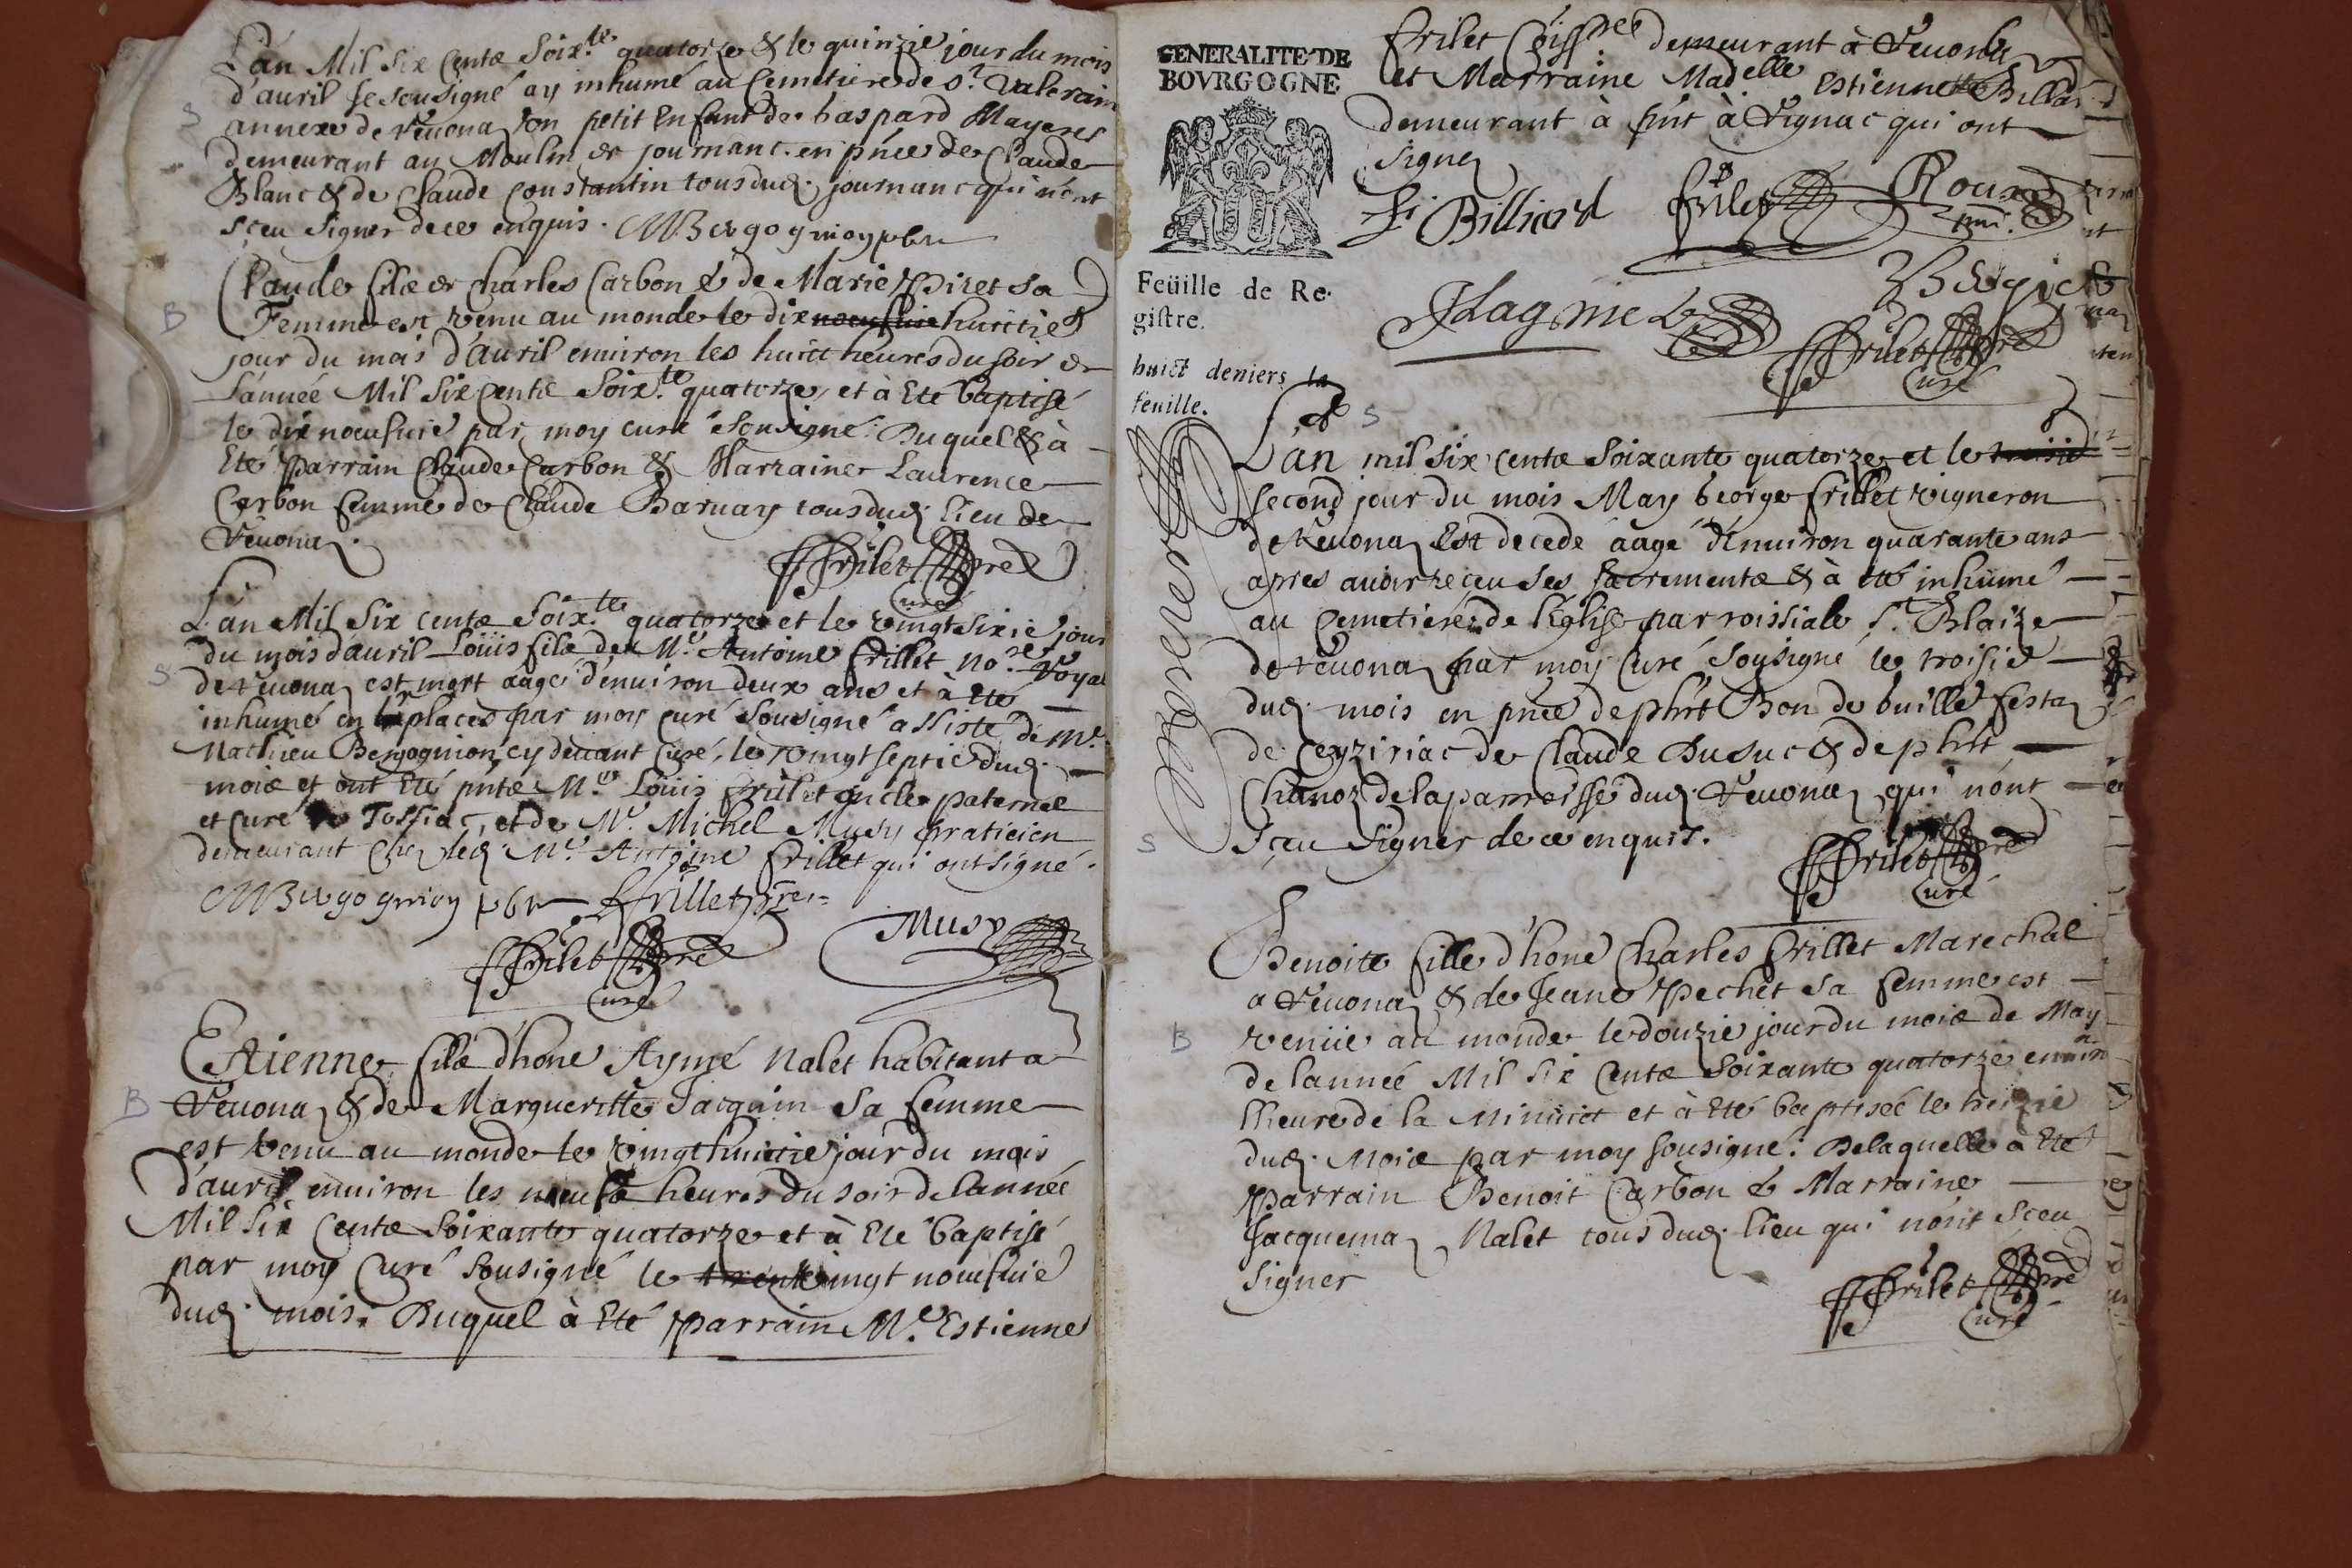 L'an Mil Six Cents Soix.te quatorze & le quinzie jour du mois
d'auril Je sousigné ay inhumé au Cemetiere de St. Valerain
annexe de Veuona Von petit Enfant de Gaspard Mayeres
demeurant au Moulin de journanc en pnce de Claude
Blanc & de Claude Constantin tous dud. journanc qui n'ont
sceu signer de ce enquis. MBergognioy pbre
B
S
Claude fils de Charles Carbon & de Marie Piret Sa
Femme est venu au monde le dix huictie
jour du mois d'Auril enuiron les huict heures du soir de
L'année Mil Six Cents Soix.te quatorze, et à Eté baptisé
le dix noeufuie par moy curé Sousigné. Duquel & à
Eté Parrain Claude Carbon & Marraine Laurence
Carbon femme de Claude Baruay tous dud. lieu de
Veuona.
Frilet pre
Curé
L'an Mil Six cents Soix.te quatorze et le vingt sixie jour
du mois d'auril Loüis fils de Me. Antoine Frillet no.re Royal
S
de Veuona est mort aagé d'enuiron deux ans et à Eté
inhumé en place par moy curé Sousigné assisté de Mr.
Mathieu Bergognion cy deuant Curé, le vingt septie dud.
mois et ont Eté pnts Mre Loüis Frilet oncle paternel
et curé de Tossiac, et de Me. Michel Musy praticien
demeurant chez led. Me. Antoine Frillet qui ont signé.
MBergognion pbr Frillet pre
Musy
Frilet pre
Curé
Estienne fils d'hone Aymé Nalet habitant a
B
Veuona & de Margueritte Jacquin Sa femme
est venu au monde le vingthuictie jour du mois
d'auril enuiron les neuf heures du soir de lannée
Mil Six Cents Soixante quatorze et à Eté baptisé
par moy Curé Sousigné le vingt noeufuie
dud. mois. Duquel à Eté parrain Me. Estienne
GENERALITE DE
BOVRGOGNE
Feüille de Re-
gistre.
huict deniers la
feuille.
Frilet demeurant à Veuona
et Marraine Mad.elle Estiennette Billiard
demeurant à pnt à Vignac qui ont
signez
Billiard Frilet Roux
Frilet pre
Curé
S
L'an mil six cents Soixante quatorze et le
second jour du mois May George Frillet vigneron
de Veuona Est decedé aagé d'enuiron quarante ans
apres auoir receu ses sacrements & à eté inhumé
au Cemetiere de l'Eglise parroissiale St. Blaize
de Veuona par moy Curé Sousigné le troisie
dud. mois en pnce de phrt Bon de buille festa
de Ceyziriac de Claude Dusuc & de phrt
Chanoz de la parroisse dud. Veuona qui n'ont
S
sceu signer de ce enquis.
Frilet pre
Curé
Benoite fille d'hone Charles Frillet Marechal
a Veuona & de Jeane Pechet sa femme est
B
venüe au monde le douzie jour du mois de May
de lanneé Mil Six Cents Soixante quatorze enuiron
l'heure de la Minuict et à Eté baptiseé le treizie
dud. Mois par moy sousigné. De laquelle à Eté
Parrain Benoit Carbon & Marraine
Jacquema Nalet tous dud. lieu qui n'ont sceu
signer
Frilet pre
Curé